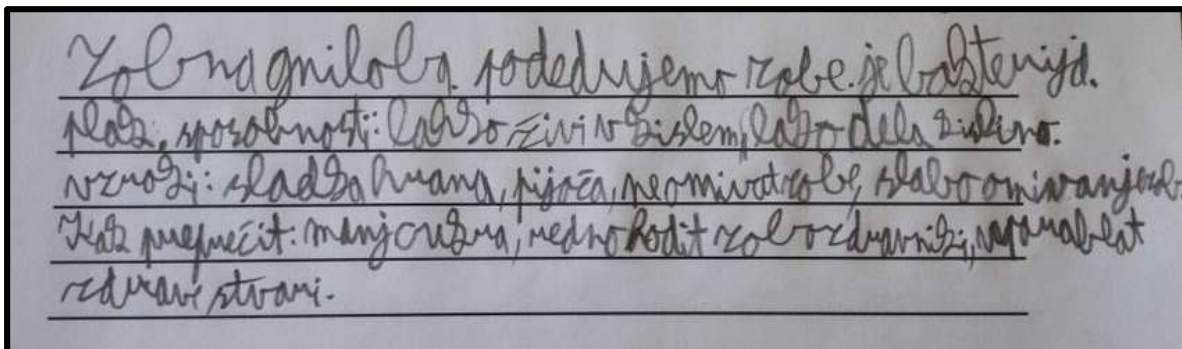 Zobna gniloba. podedujemo zobe. je bakterija.
plak, sposobnosti: lahko živi v kislem, lako dela kislino.
vzroki: sladka hrana, pijača, ne omivat zobe, slabo omivanje zob.
Kak preprečit: manj cukra, redno hodit zobozdravniki, uporablat
zdrave stvari.